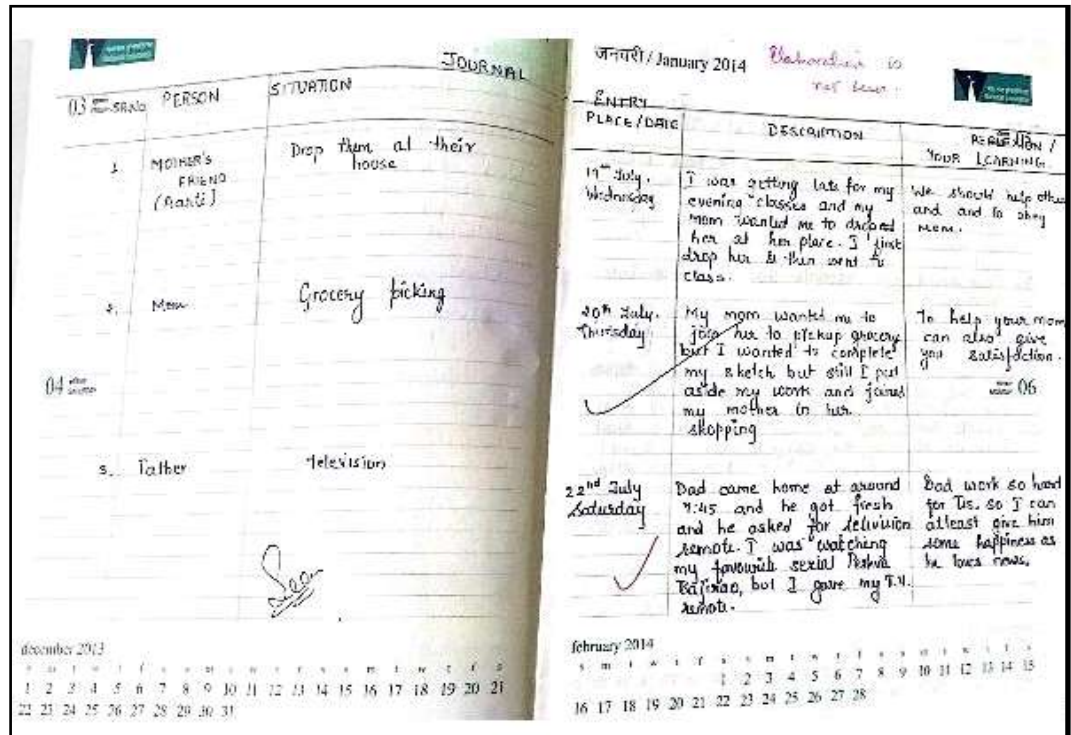 JOURNAL
03
S.RNO
PERSON
SITUATION
1.
MOTHER'S
FRIEND
(Aarti)
Drop them at their
house
2.
Mom
Grocery picking
04
3.
Father
Television
Seen
december 2013
s m t w t f s s m t w t f s s m t w t f s
1 2 3 4 5 6 7 8 9 10 11 12 13 14 15 16 17 18 19 20 21
22 23 24 25 26 27 28 29 30 31
जनवरी / January 2014
is
not seen.
ENTRY
PLACE/DATE
DESCRIPTION
REFLECTION /
YOUR LEARNING
19th July,
Wednesday
I was getting late for my
evening classes and my
mom wanted me to droped
her at her place. I first
drop her & then went to
class.
We should help other
and and to obey
Mom.
20th July,
Thursday
My mom wanted me to
join her to pickup grocery
but I wanted to complete
my sketch but still I put
aside my work and joined
my mother in her
shopping
To help your mom
can also give
you satisfaction.
06
22nd July
Saturday
Dad came home at around
9:45 and he got fresh
and he asked for television
remote. I was watching
my favourite serial Peshwa
Bajirao, but I gave my T.V.
remote.
Dad work so hard
for Us, so I can
atleast give him
some happiness as
he loves news.
february 2014
s m t w t f s s m t w t f s s m t w t f s
1 2 3 4 5 6 7 8 9 10 11 12 13 14 15
16 17 18 19 20 21 22 23 24 25 26 27 28